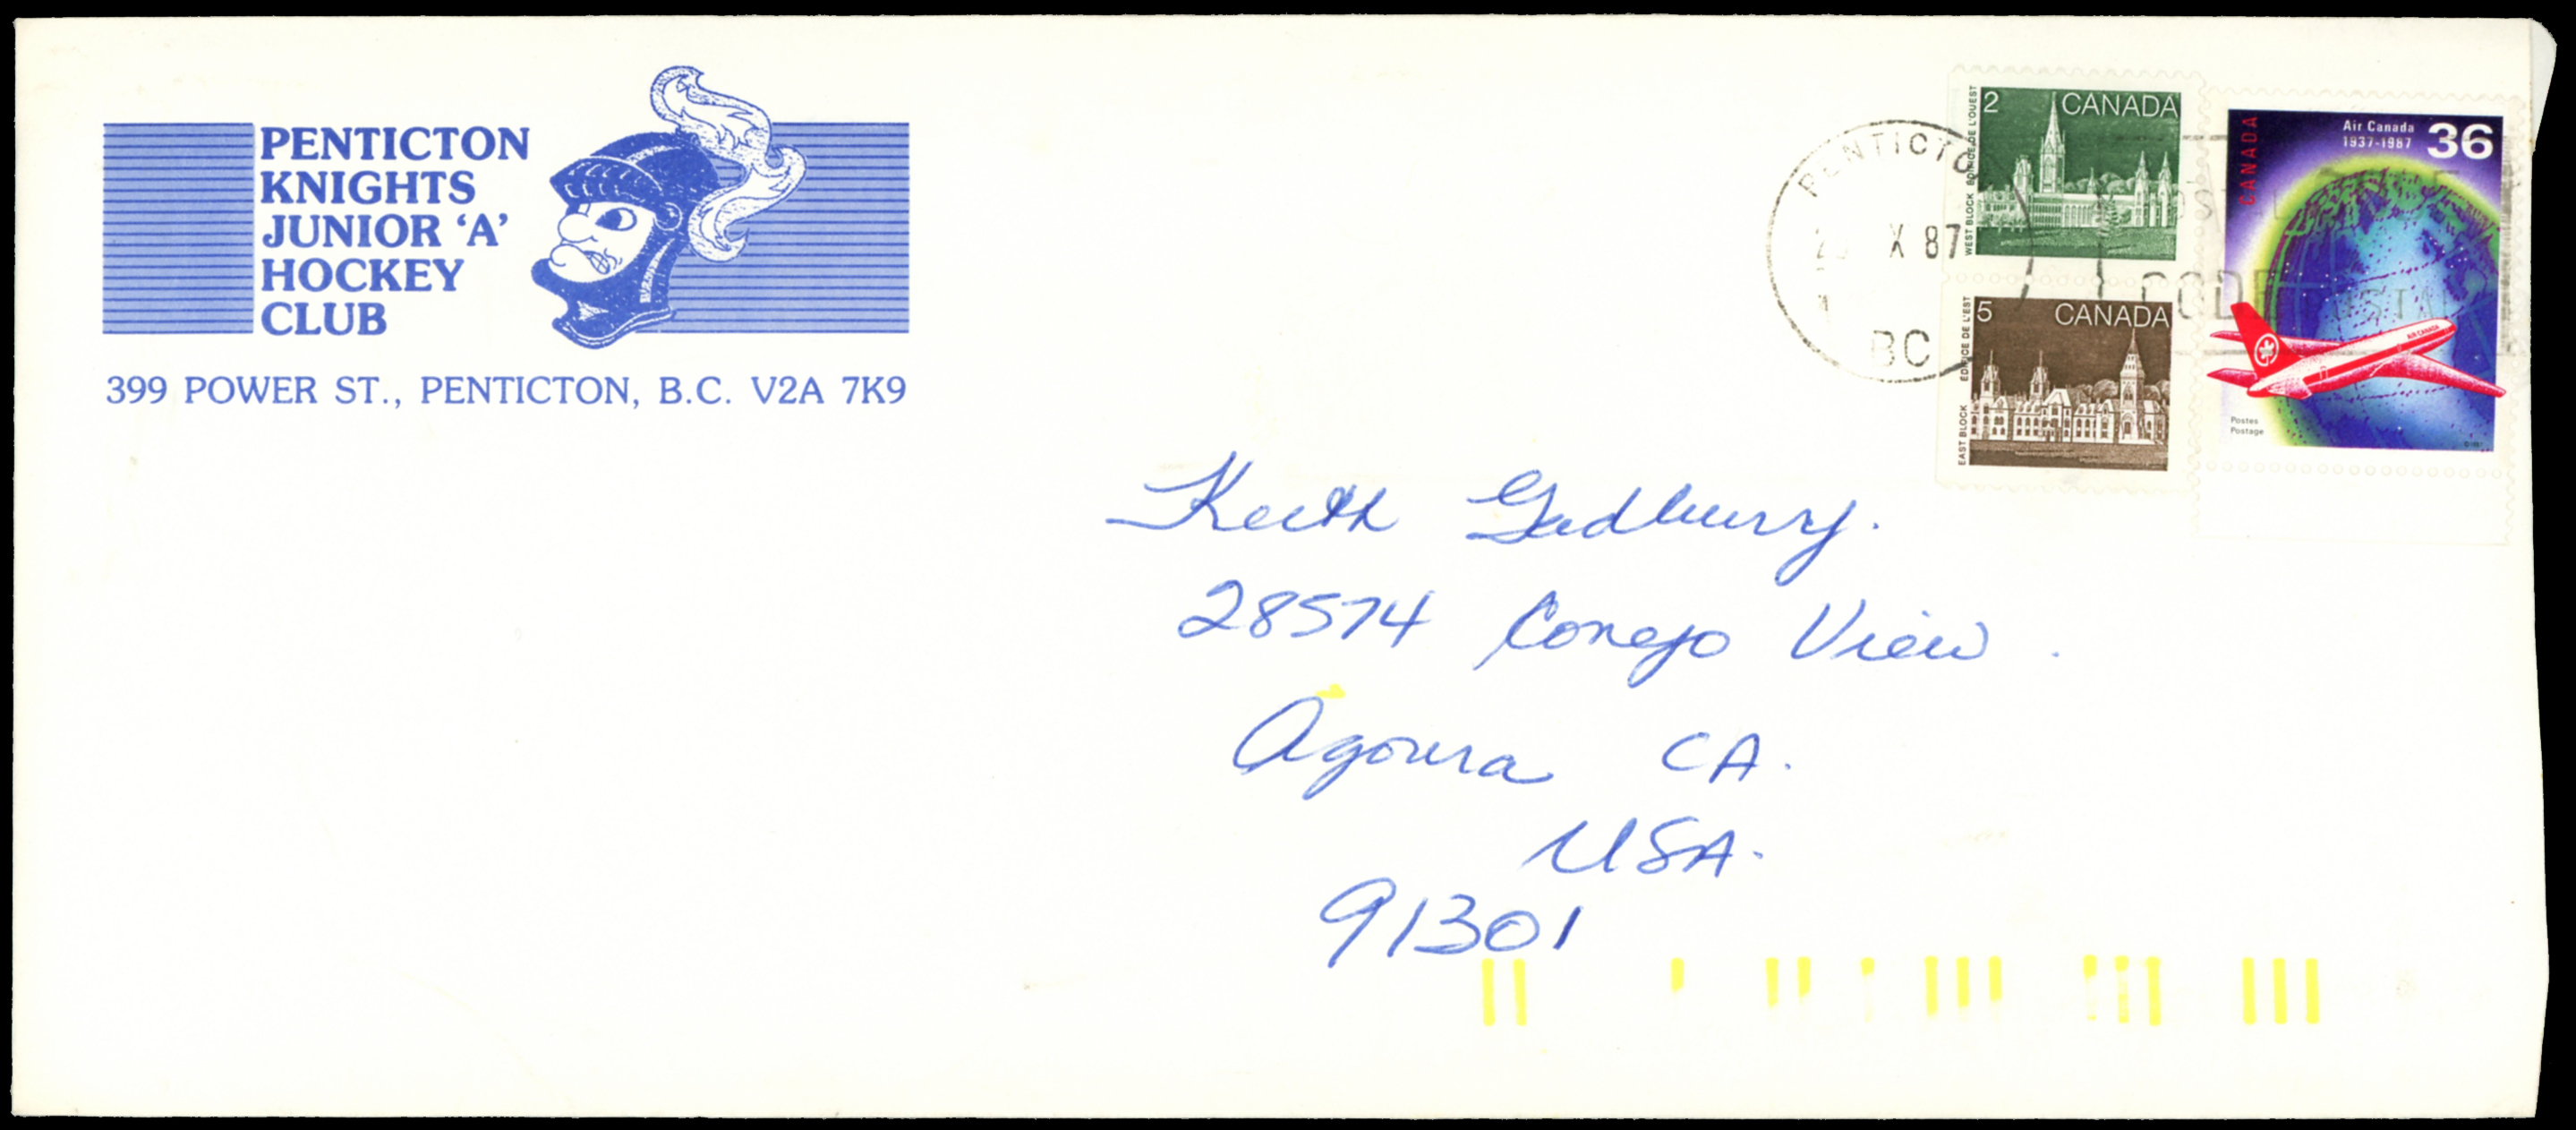 PENTICTON
KNIGHTS
JUNIOR ‘A’
HOCKEY
CLUB
399 POWER ST., PENTICTON, B.C. V2A 7K9
PENTICTO
X 87
BC
2 CANADA
WEST BLOCK ÉDIFICE DE L'OUEST
5 CANADA
EAST BLOCK ÉDIFICE DE L'EST
CANADA
Air Canada
1937-1987
36
AIR CANADA
Postes
Postage
POSTAL
CODE POSTAL
Keith Gadbury.
28574 Conejo View.
Agoura CA.
USA.
91301